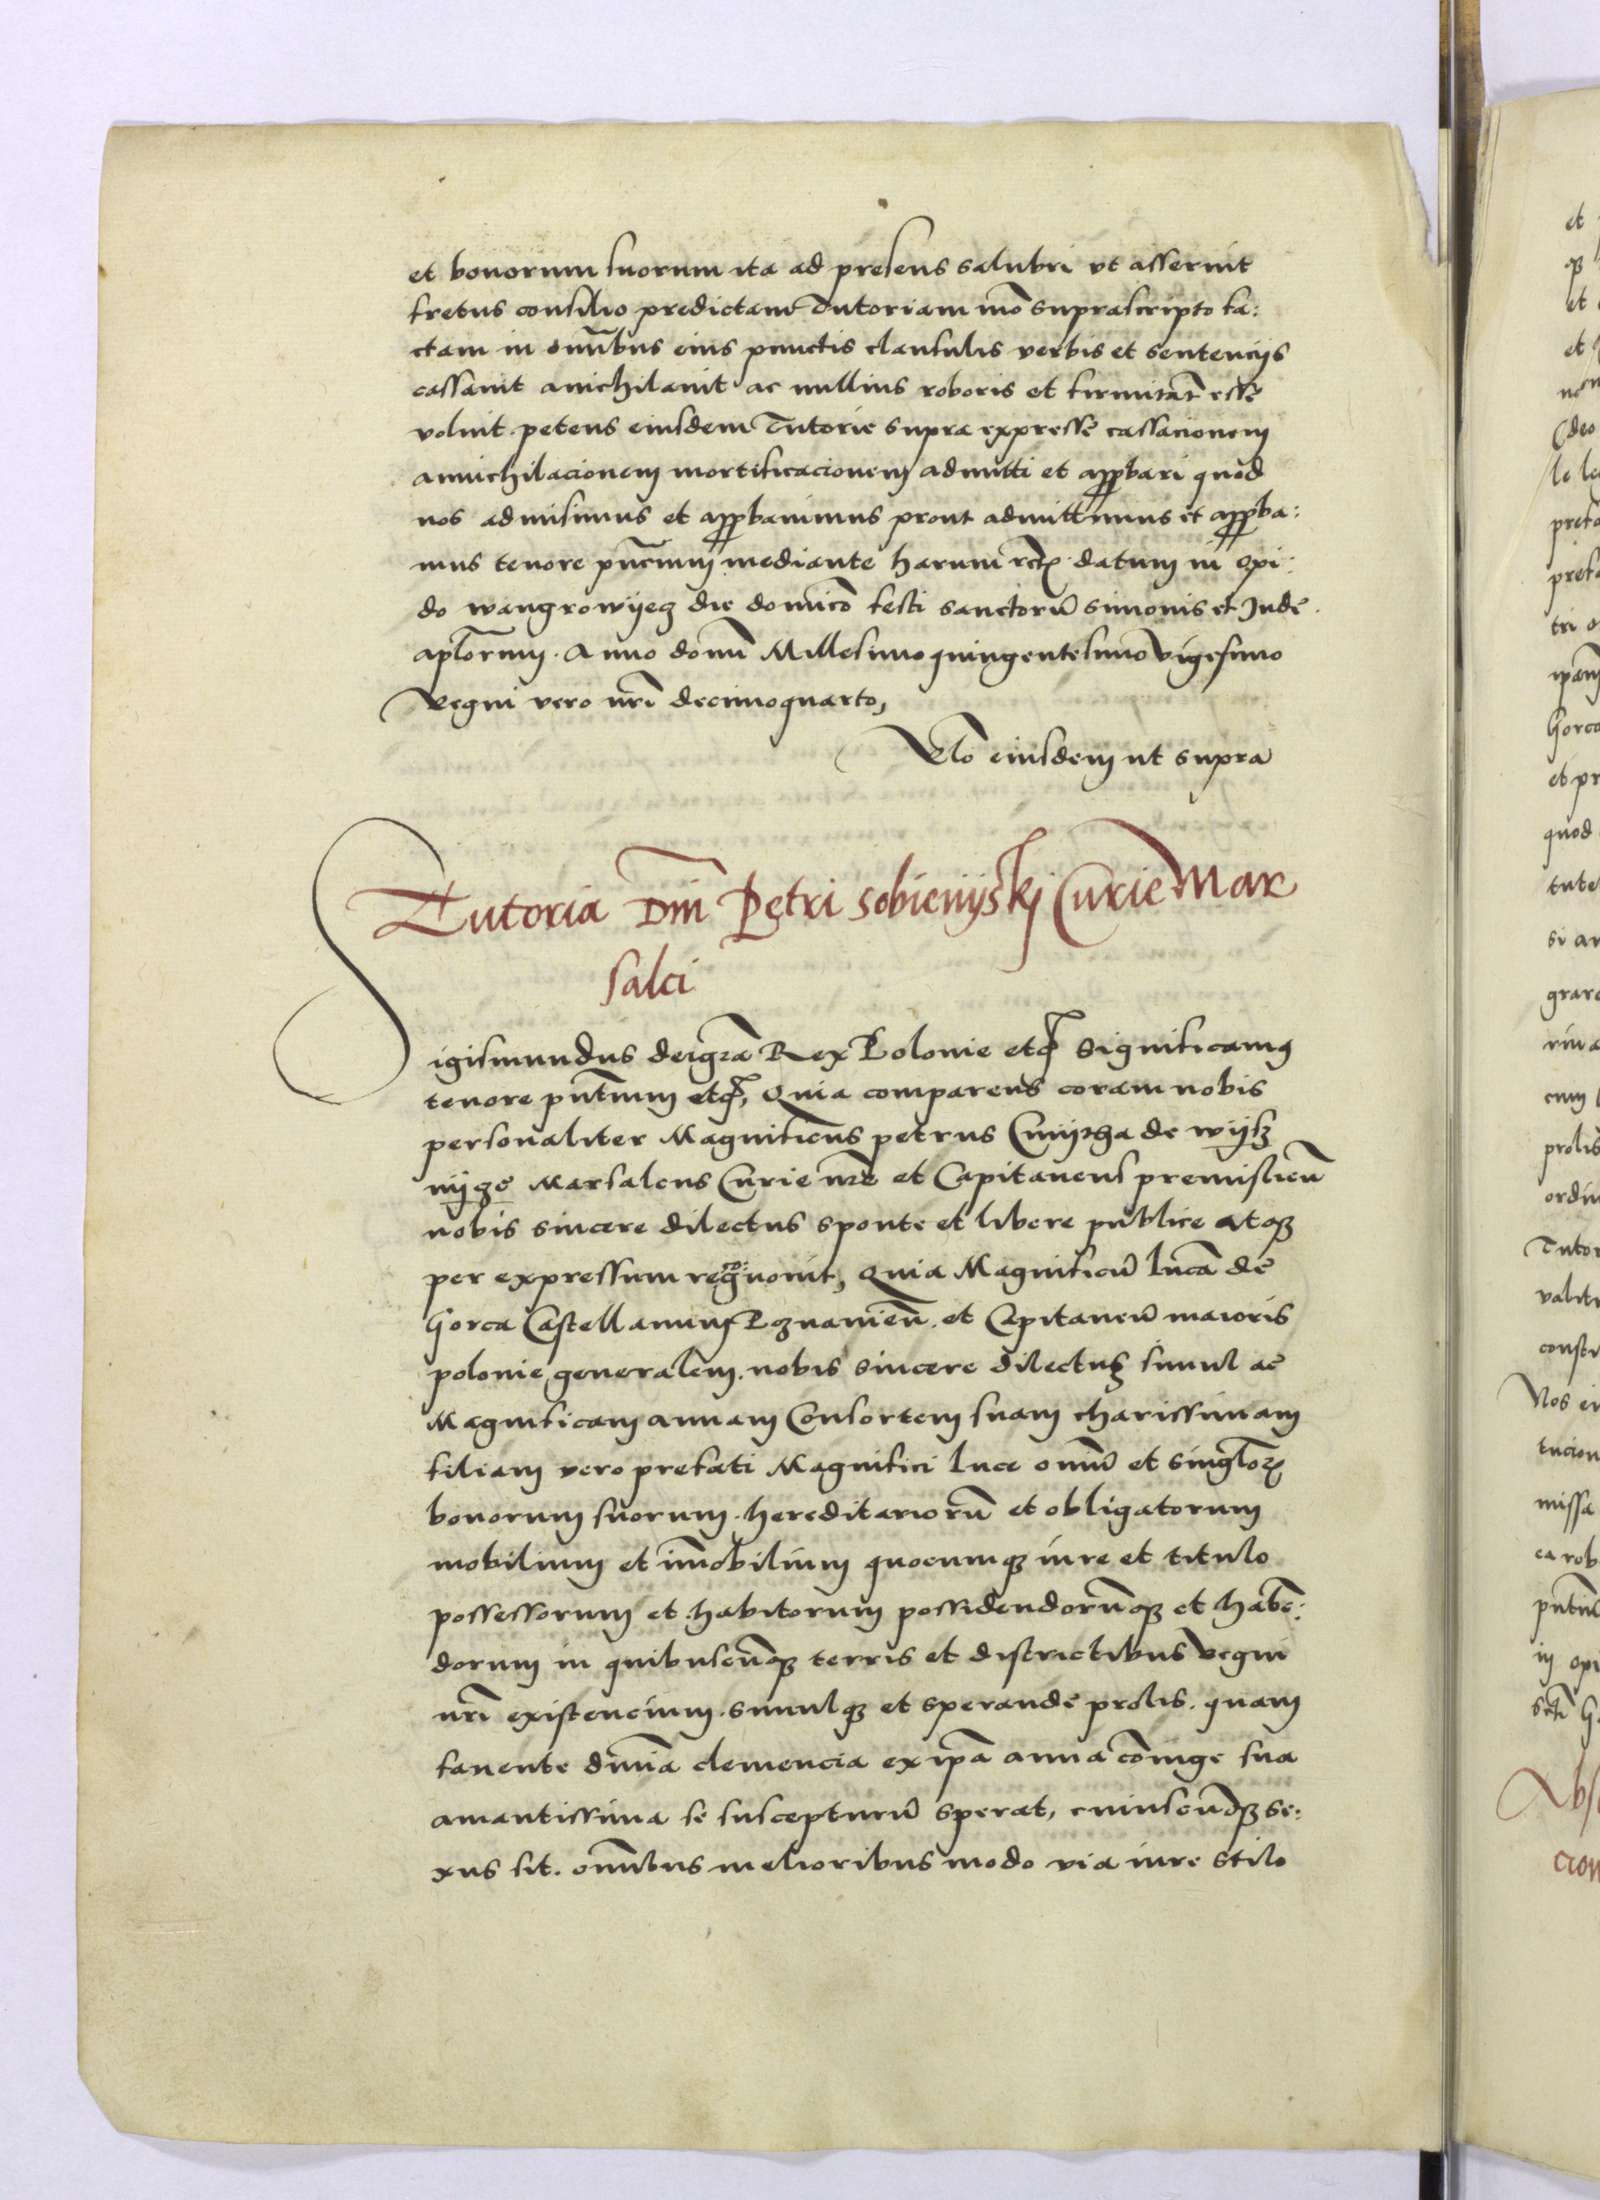 et bonorum suorum ita ad presens salubri vt asseruit
fretus consilio predictam Tutoriam mo͞ suprascripto fa:
ctam in om̅ibus eius punctis clausulis verbis et sentencijs
cassauit anichilauit ac nullius roboris et firmitat͞ esse
voluit petens eiusdem Tutorie supra expresse cassacionem
annichilacionem mortificacionem admitti et approbari quod
nos admisimus et approbauimus prout admittimus et approba:
mus tenore pn̅cium mediante harum rc̅ꝝ datum in opi:
do wangrowyecz die domi̅co festi sanctorū simonis et Jude
aplorum. Anno domi̅ Millesimo quingentesimo vigesimo
Regni vero nr̅i decimoquarto,
Rlo eiusdem ut supra
Tutoria Dni̅ Petri Sobienijskj Curie Mar
salci
Sigismundus dei gr̅a Rex Polonie etc̅ Significamus
tenore pn̅tium etc̅, Quia comparens coram nobis
personaliter Magnificus petrus Cmijtha de wijss
nijcze Marsalcus Curie nr̅e et Capitaneus premislien̅
nobis sincere dilectus sponte et libere publice atqꝫ
per expressum recognouit, Quia Magnificū lucā de
Gorca Castellanum Poznanien̅. et Capitaneū maioris
polonie generalem. nobis sincere dilectuꝫ simul ac
Magnificam annam Consortem suam charissimam
filiam vero prefati Magnifici luce omniū et singloꝝ
bonorum suorum. hereditariorū et obligatorum
mobilium et im̅obilium quocumqꝫ iure et titulo
possessorum et habitorum possidendorūqꝫ et habe̅:
dorum in quibuscu̅qꝫ terris et districtibus Regni
nr̅i existencium. simulqꝫ et sperande prolis. quam
fauente diuīa clemencia ex ip̅a anna co̅iuge sua
amantissima se suscepturū sperat, cuiuscu̅qꝫ se:
xus sit. om̅ibus melioribus modo via iure stilo